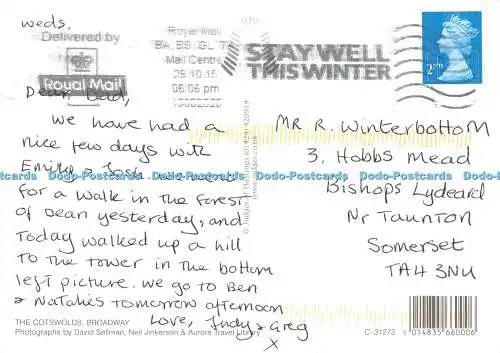 weds.
Delivered by
Royal Mail
Royal Mail
BA, BS, GL, TA
Mail Centre
28.10.15
06:06 pm
STAY WELL
THIS WINTER
2ND
Dear Dad,
We have had a
nice few days with
Emily & Josh
for a walk in the forest
of Dean yesterday, and
Today walked up a hill
to the tower in the bottom
left picture. we go to Ben
& Natalies tomorrow afternoon
Love, Judy & Greg
x
MR R. WinterbottoM
3, Hobbs Mead
Bishops Lydeard
Nr Taunton
Somerset
TA4 3NU
© Judges of Hastings (01424) 420919
www.judges.co.uk
Dodo-Postcards Dodo-Postcards Dodo-Postcards Dodo-Postcards Dodo-Postcards Dodo-Postcards
THE COTSWOLDS, BROADWAY
Photographs by David Sellman, Neil Jinkerson & Aurora Travel Library
C-31273
5 014835 660006